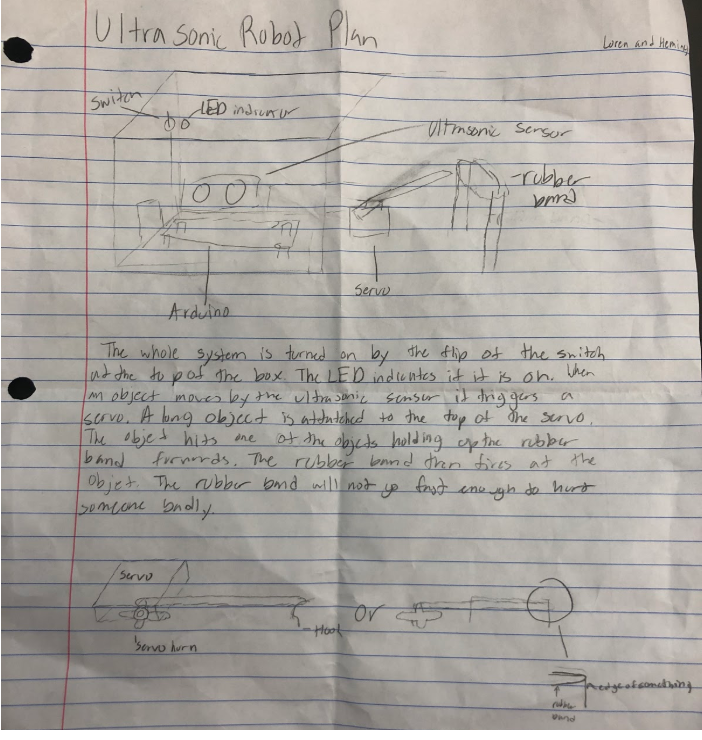 Ultra sonic Robot Plan
Loren and Heming
switch
LED indicator
Ultrasonic sensor
rubber
band
Servo
Arduino
The whole system is turned on by the flip of the switch
at the top of the box. The LED indicates if it is on. When
an object moves by the ultrasonic sensor it triggers a
servo. A long object is attatched to the top of the servo.
The objet hits one of the objets holding up the rubber
band forwards. The rubber band then fires at the
objet. The rubber band will not go fast enough to hurt
someone badly.
servo
Hook
servo horn
Or
edge of something
rubber
band